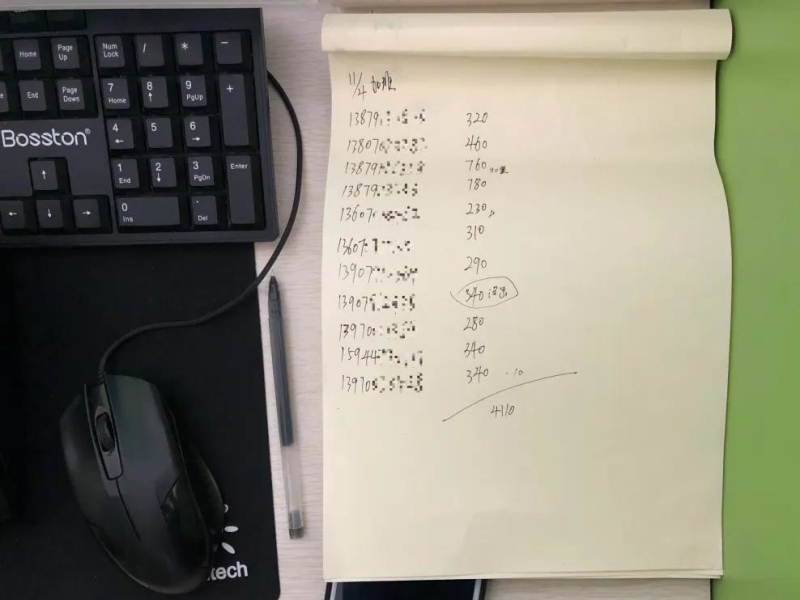 Home
Page Up
Num Lock
/
*
-
End
Page Down
7 Home
8 ↑
9 PgUp
+
Bosston®
4 ←
5
6 →
↑
1 End
2 ↓
3 PgDn
Enter
← ↓ →
0 Ins
. Del
tech
11/4
13879 320
13807 460
13879 760
13879 780
13607 230
13607 310
13907 290
13907 340
13970 280
15944 340
13970 340 -10
4110